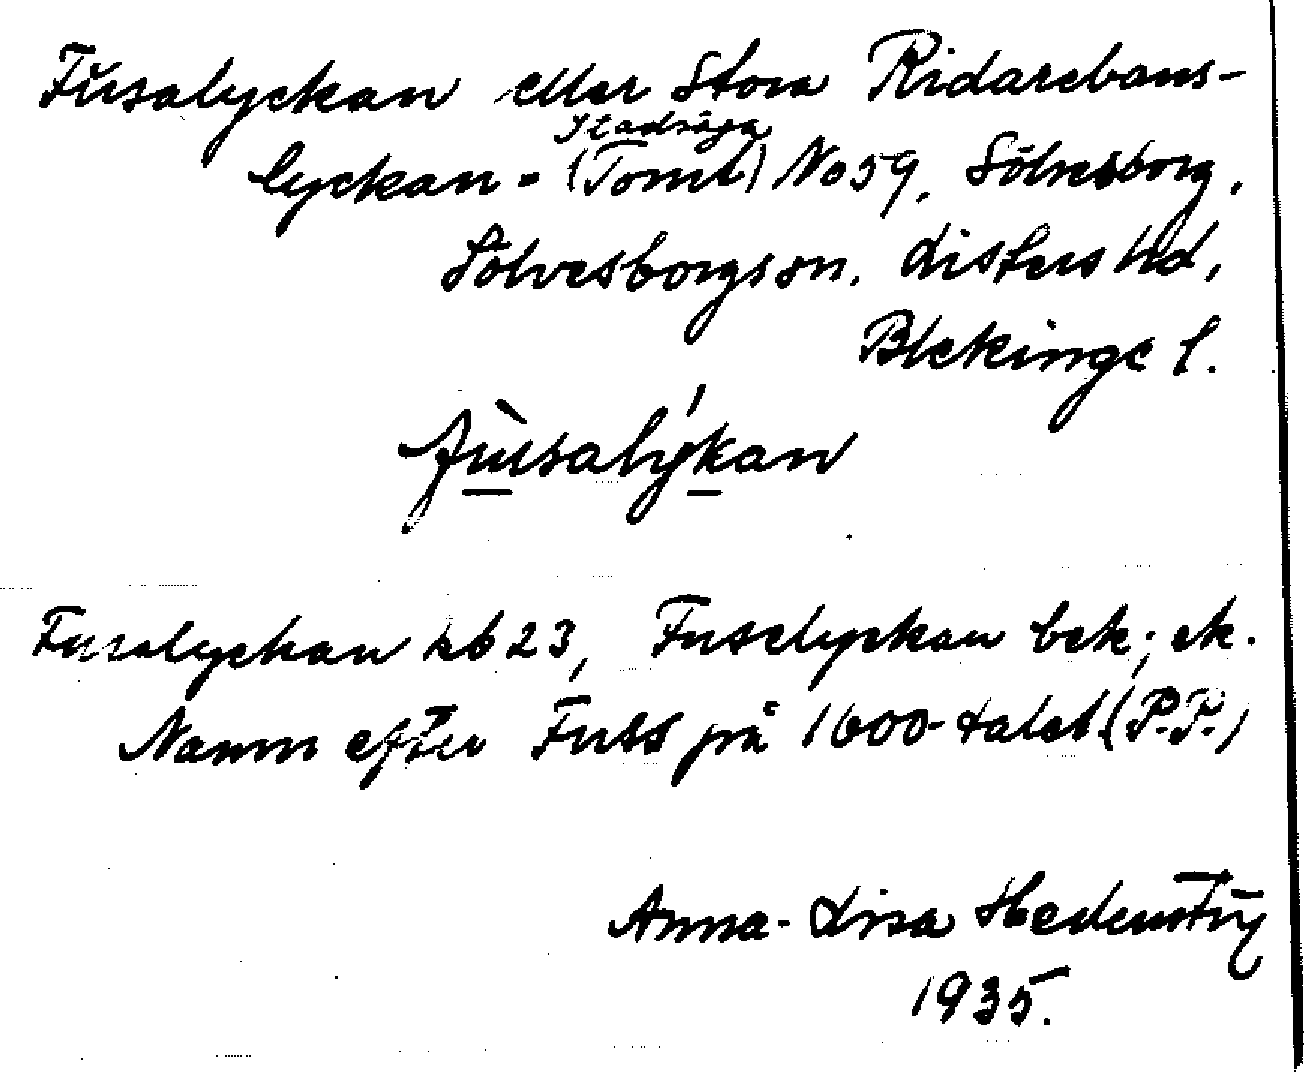 Fusalyckan eller Stora Ridarebans-
Stadsäga
lyckan - (Tomt) No 59, Sölvesborg,
Sölvesborgs sn. Listers hd,
Blekinge l.
fùusalýkan
Fusalyckan kb 23, Fuselyckan bek; ek.
Namn efter Fuss på 1600-talet. (P.P.)
Anna-Lisa Hedenstig
1935.